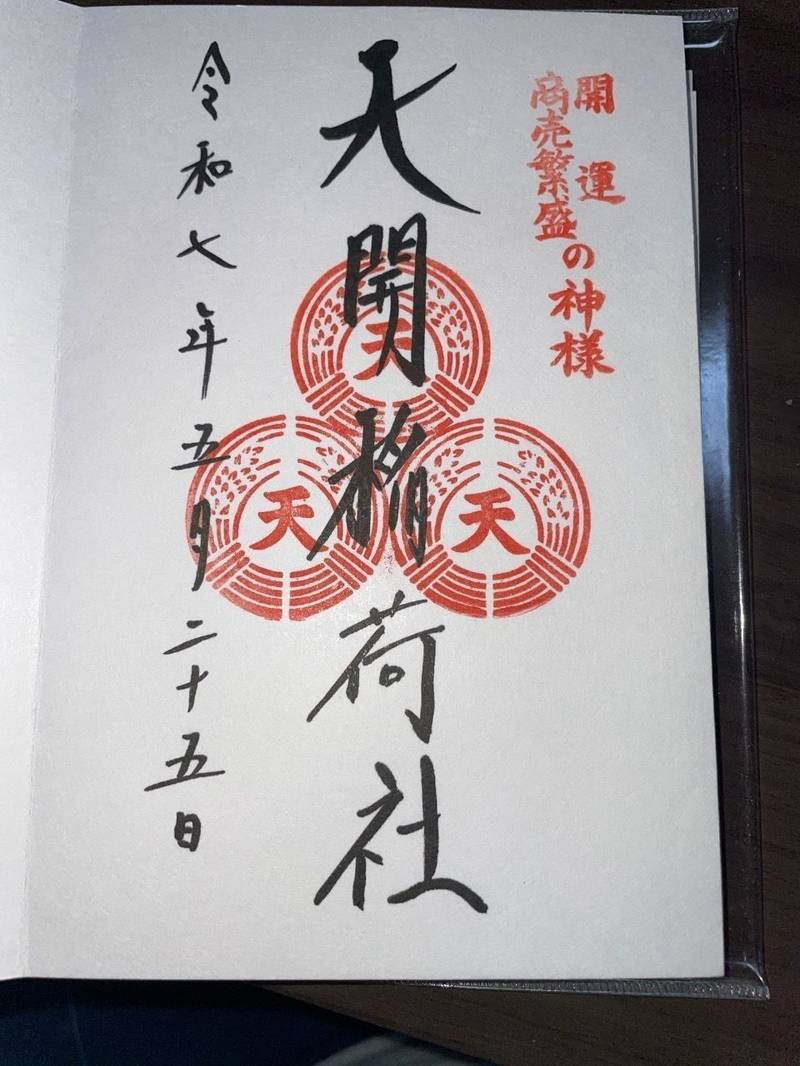 開運
商売繁盛
の神様
天開稲荷社
天
天
天
令和七年五月二十五日